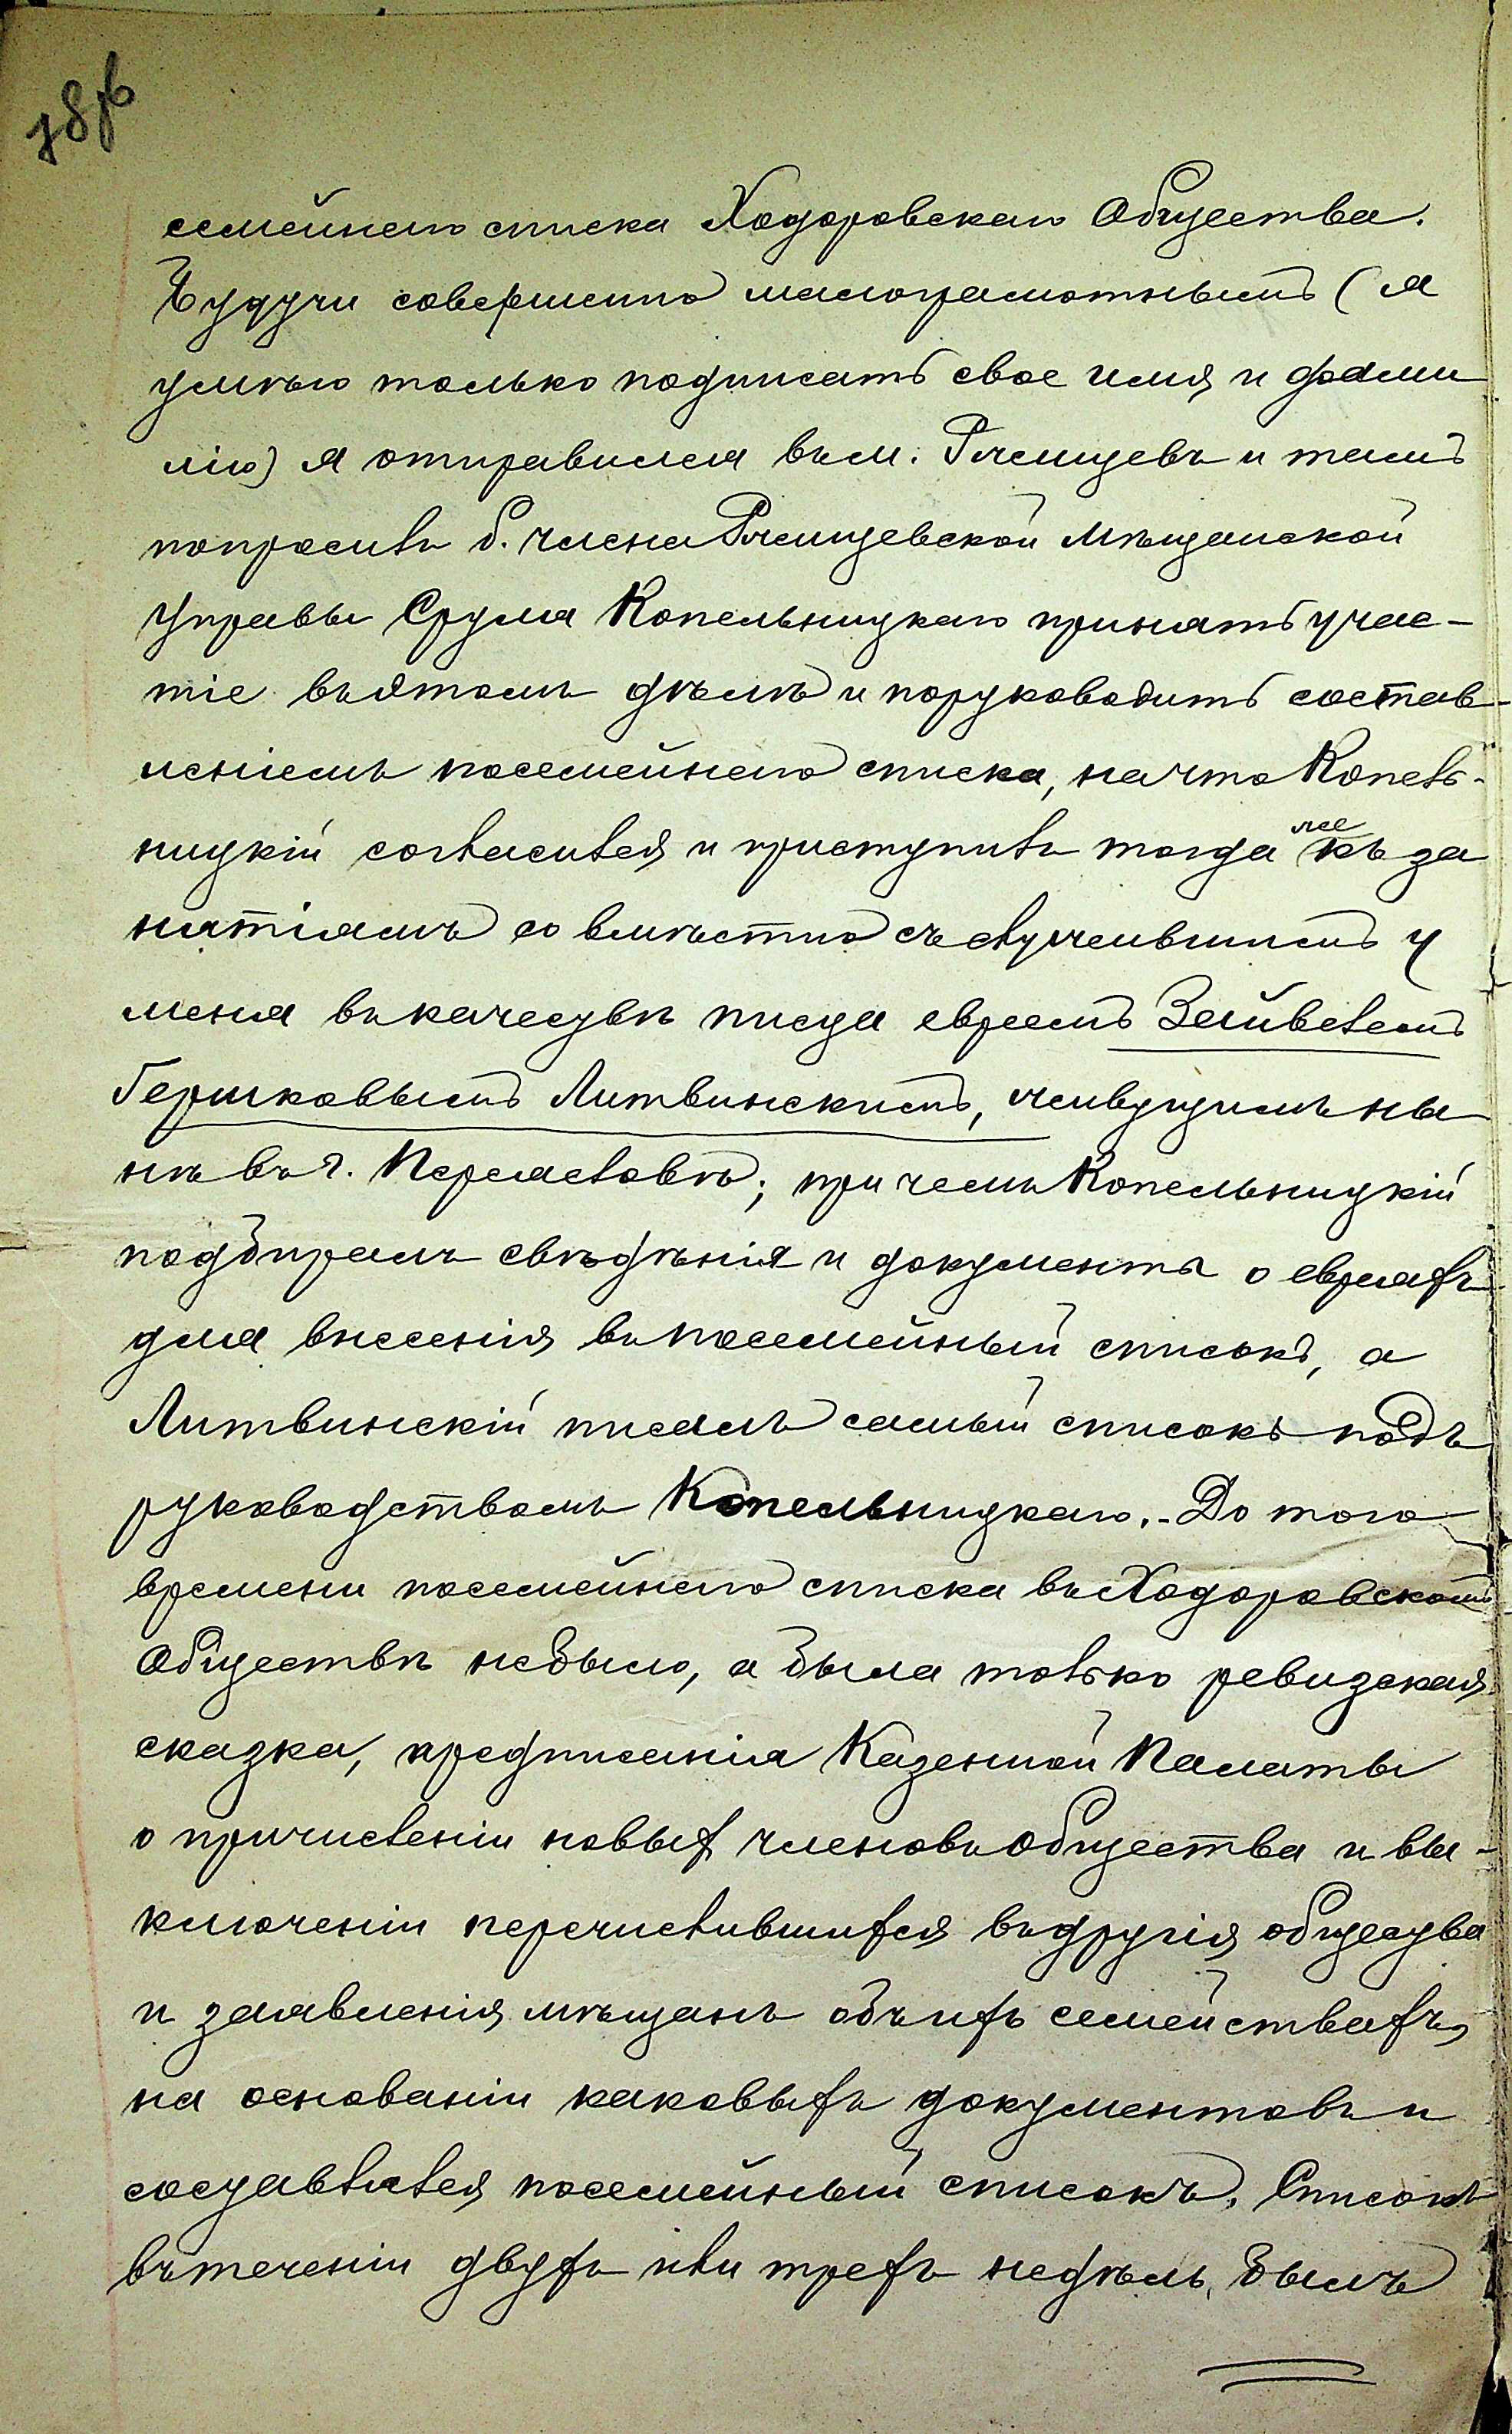 семейнаго списка Ходоровскаго Общества.
Будучи совершенно малограмотнымъ (я
умѣю только подписать свое имя и фами
лію) я отправился въ м. Ржищевъ и тамъ
попросилъ б. члена Ржищевской Мѣщанской
Управы Срула Копельницкаго принять учас-
тіе въ этомъ дѣлѣ и поруководить состав-
леніемъ посемейнаго списка, на что Копель-
ницкій согласился и приступилъ тогда же къ за
нятіямъ совмѣстно съ служившимъ у
меня въ качествѣ писца евреемъ Зейвелемъ
Гершковымъ Литвинскимъ, живущимъ ны
нѣ въ г. Переяславѣ; при чемъ Копельницкій
подбиралъ свѣдѣнія и документы о евреяхъ
для внесенія въ посемейный списокъ, а
Литвинскій писалъ самый списокъ подъ
руководствомъ Копельницкаго. - До того
времени посемейнаго списка въ Ходоровскомъ
Обществѣ не было, а была только ревизская
сказка, предписанія Казенной Палаты
о причисленіи новых членовъ Общества и вы-
ключеніи перечислившихся въ другія общества
и заявленія мѣщанъ объ ихъ семействахъ,
на основаніи каковыхъ документовъ и
составлялся посемейный списокъ. Списокъ
въ теченіи двухъ или трехъ недѣль былъ